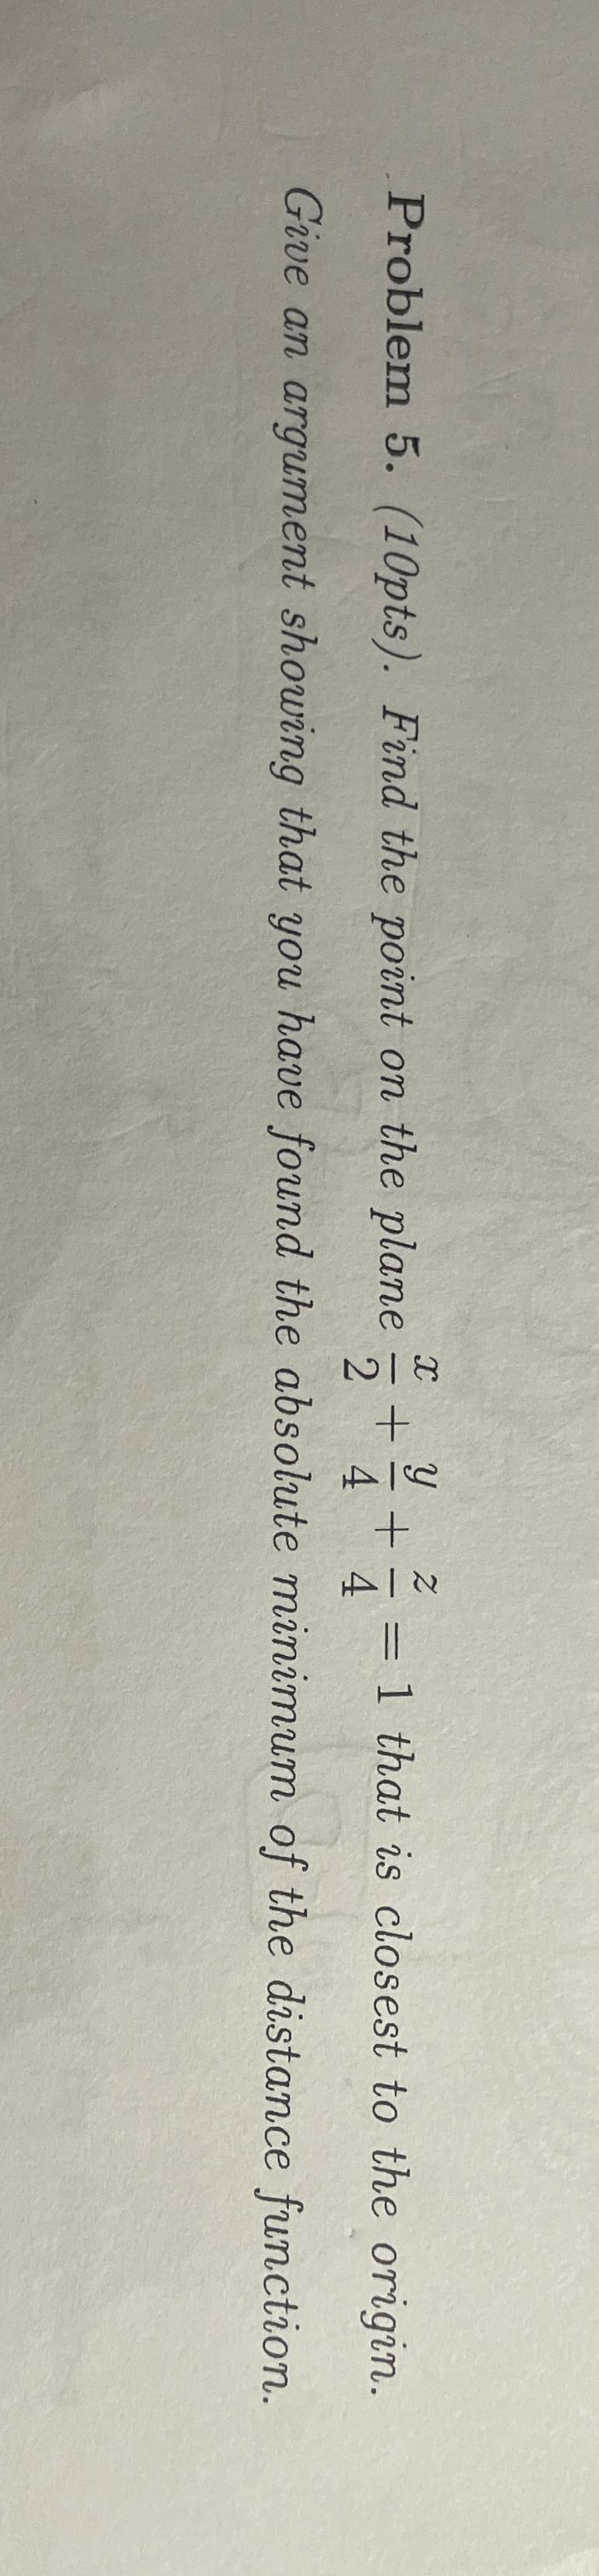 Problem 5. (10pts). Find the point on the plane x/2 + y/4 + z/4 = 1 that is closest to the origin.
Give an argument showing that you have found the absolute minimum of the distance function.